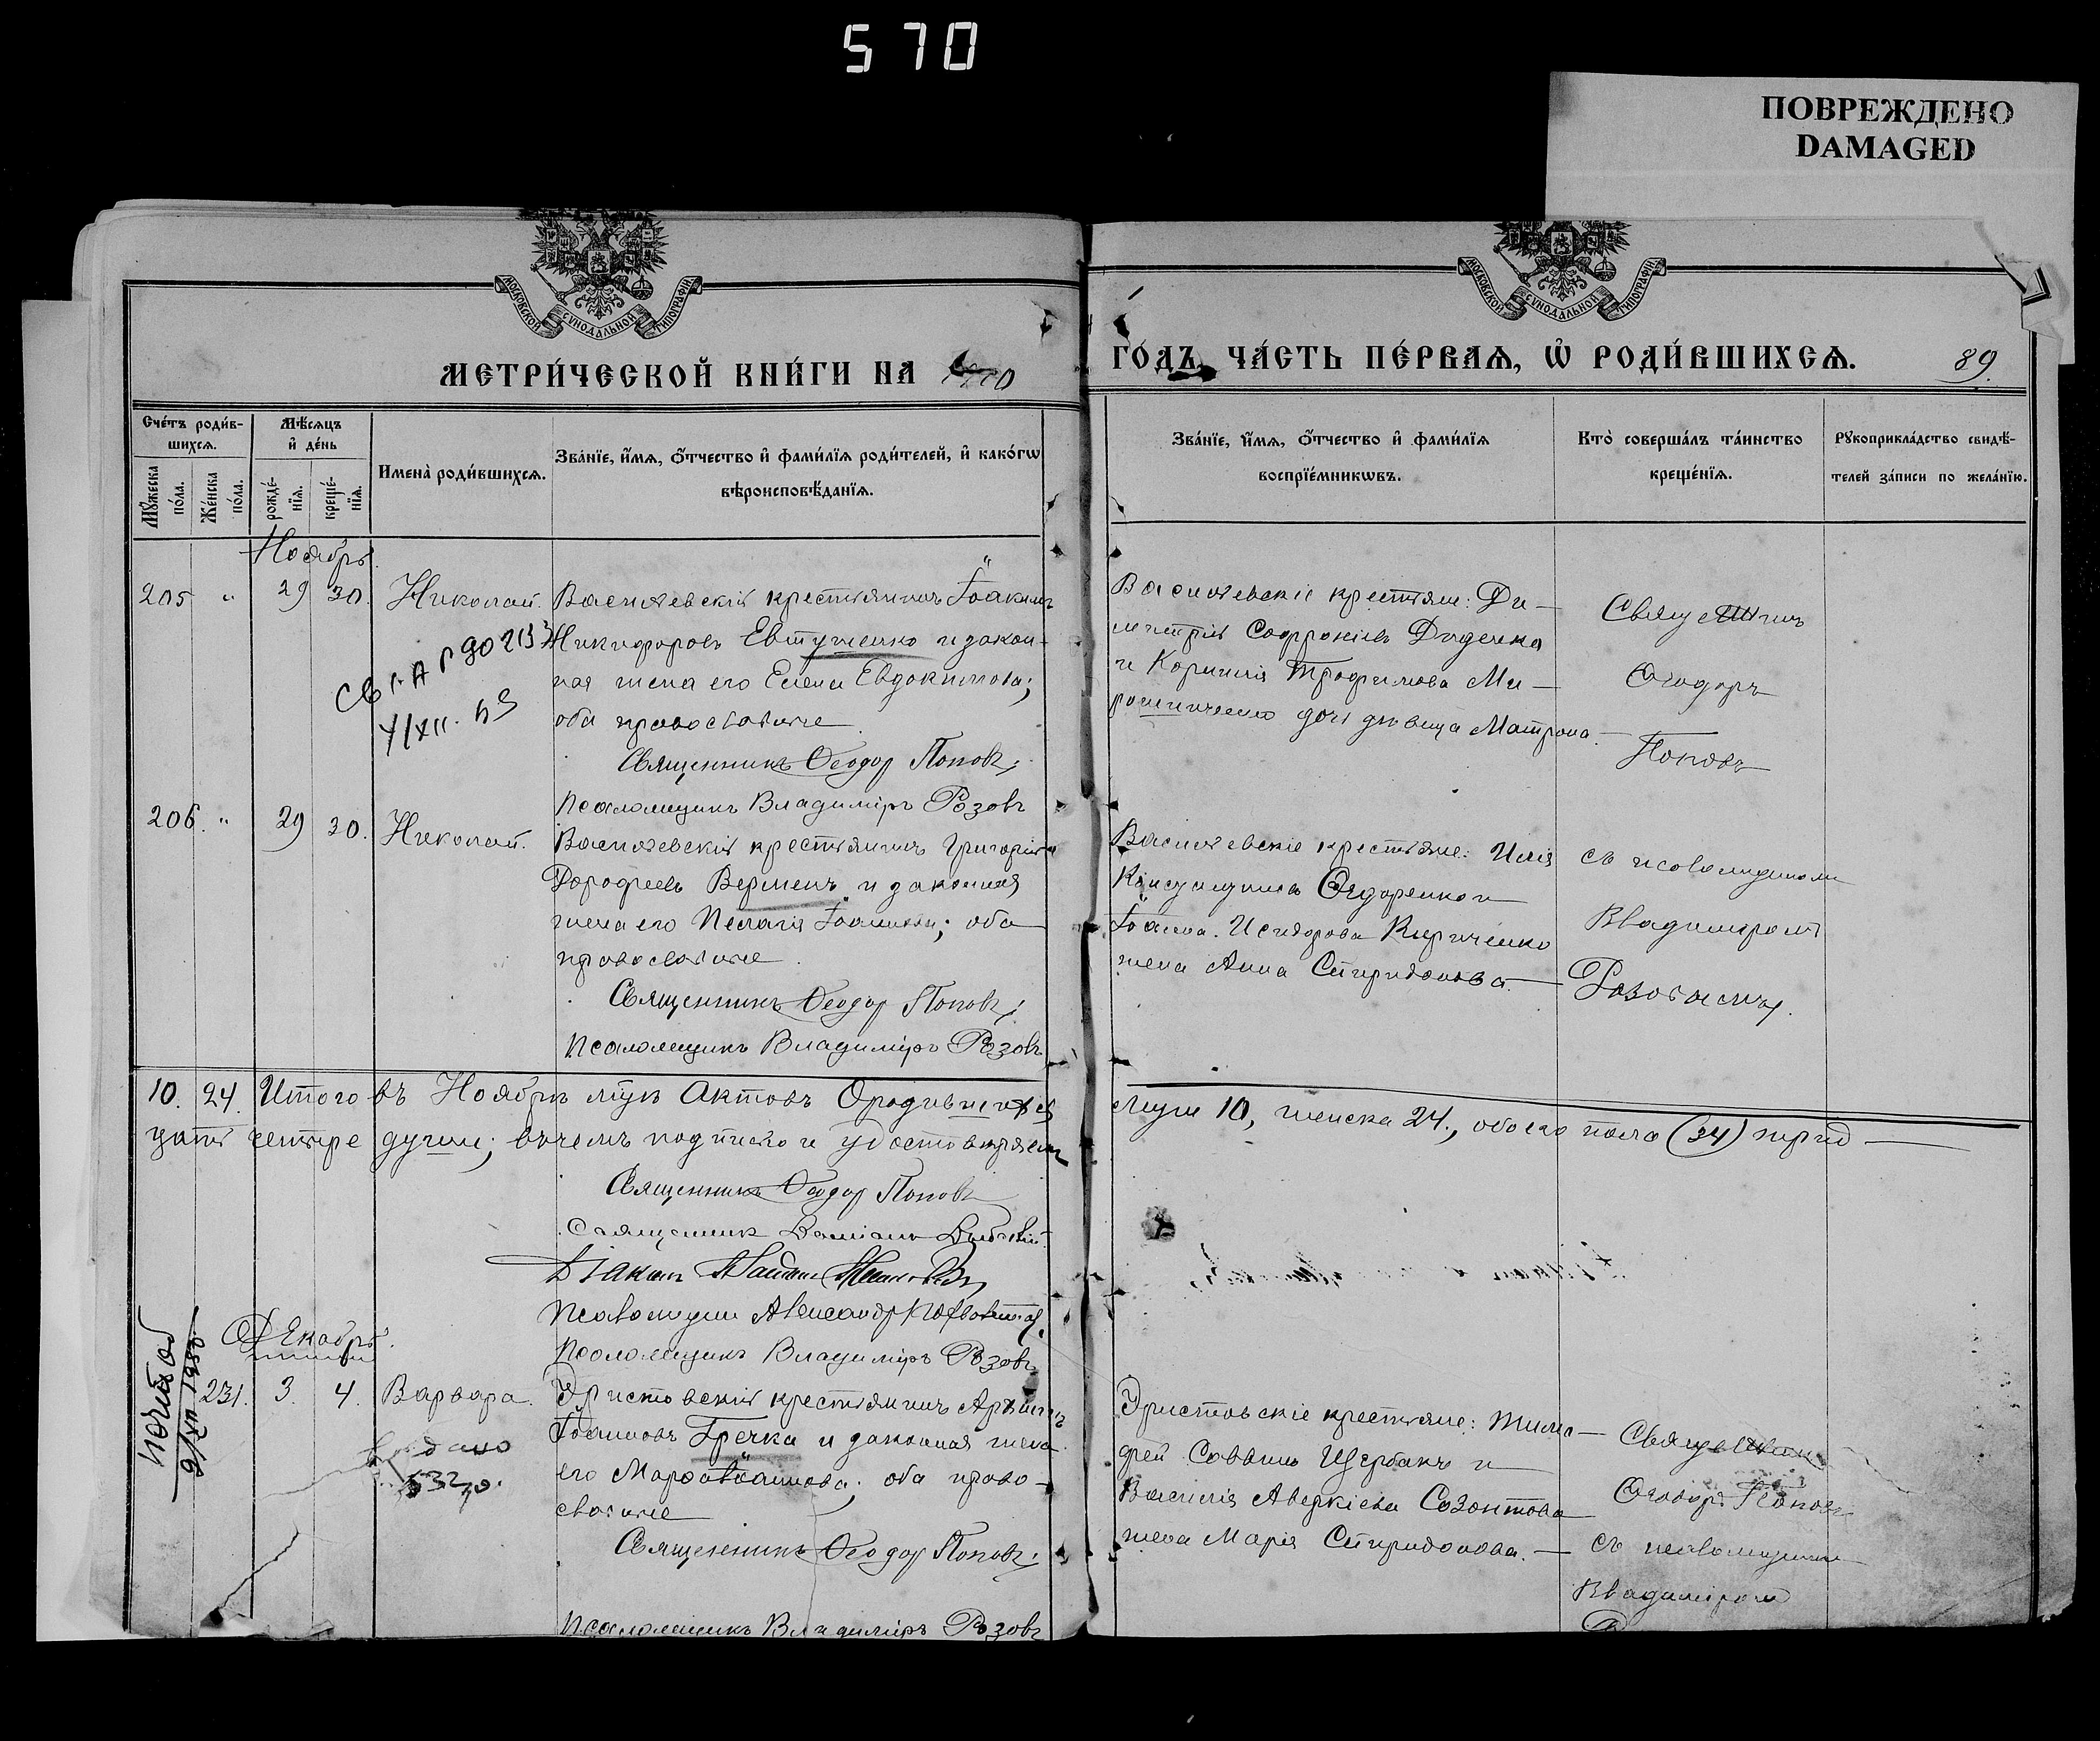 570
ПОВРЕЖДЕНО
DAMAGED
МОСКОВСКОЙ СѴНОДАЛЬНОЙ ТИПОГРАФІИ
МОСКОВСКОЙ СѴНОДАЛЬНОЙ ТИПОГРАФІИ
МЕТРИ́ЧЕСКОЙ КНИ́ГИ НА 1910
ГО́ДЪ, ЧА́СТЬ ПЕ́РВАѦ, Ѡ҆ РОДИ́ВШИХСѦ.
89.
Сче́тъ роди́вшихсѧ.
Мꙋ́жеска по́ла.
Же́нска по́ла.
Мѣ́сѧцъ и҆ де́нь
рожде́нїѧ.
креще́нїѧ.
Имена̀ роди́вшихсѧ.
Зва́нїе, и҆́мѧ, ѻ҆́тчество и҆ фами́лїѧ роди́телей, и҆ како́гѡ
вѣроисповѣ́данїѧ.
Зва́нїе, и҆́мѧ, ѻ҆́тчество и҆ фами́лїѧ
воспрїе́мникѡвъ.
Кто̀ соверша́лъ та́инство
креще́нїѧ.
Рꙋкоприкла́дство свидѣ́-
телей за́писи по жела́нїю.
Ноябрь.
205 " 29 30. Николай.
Василевскій крестьянинъ Іоакимъ
Никифоровъ Евтушенко и закон-
ная жена его Елена Евдокимова;
оба православные
Священникъ Ѳеодор Поповъ;
Псаломщикъ Владиміръ Розовъ
Василевскіе крестьяне: Ди-
митрій Софроніевъ Диденко
и Корнилія Трофимова Ми-
рошниченко дочь дѣвица Матрона.
Священникъ
Ѳеодоръ
Поповъ
206. " 29 30. Николай.
Василевскій крестьянинъ Григорій
Дорофеевъ Верменъ и законная
жена его Пелагія Іоаннова; оба
православные.
Священникъ Ѳеодор Поповъ;
Псаломщикъ Владиміръ Розовъ
Василевскіе крестьяне: Илія
Ѳедоренко и
Іоанна Исидорова Кириченко
жена Анна Спиридонова.
съ псаломщикомъ
Владиміромъ
Розовымъ.
10. 24. Итого въ Ноябрѣ мцѣ Актовъ О родившихся
Муж 10, женска 24., обоего пола (34) трид-
цать четыре души; въ чемъ подписью и удостовѣряемъ
Священникъ Ѳеодор Поповъ
Священник
Діакон
Псаломщик Александр
Псаломщикъ Владиміръ Розовъ
Декабрь.
231. 3. 4. Варвара.
Христовскій крестьянинъ
Іоанновъ Гречка и законная жена
его Марѳа Іоаннова; оба право-
славные
Священникъ Ѳеодор Поповъ;
Псаломщикъ Владиміръ Розовъ
Христовскіе крестьяне: Тимо-
фей Саввинъ Щербакъ и
Василія Аверкіева Созонтова
жена Марія Спиридонова.
Священникъ
Ѳеодоръ Поповъ
съ псаломщикомъ
Владиміромъ